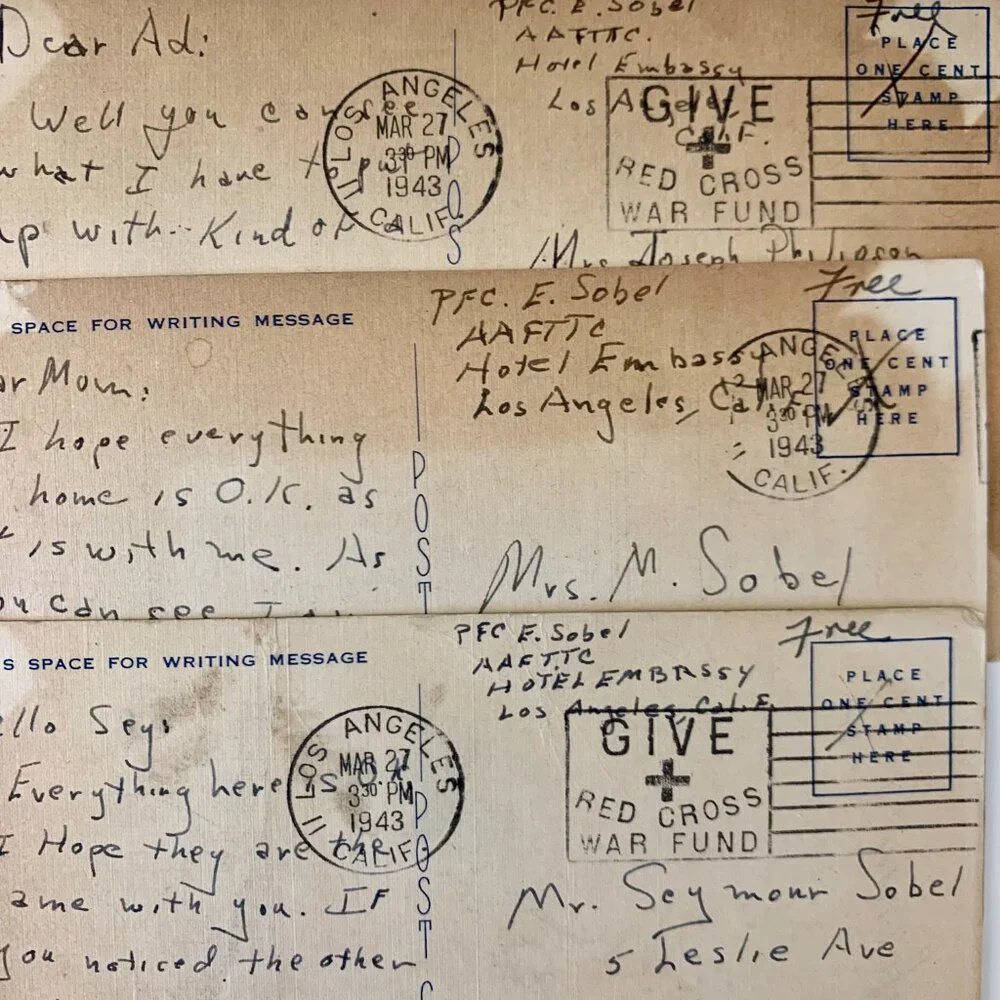 Dear Ad:
Well you can see
what I have to put
up with.. Kind of a
LOS ANGELES
11
MAR 27
3 30 PM
1943
CALIF.
PFC. E. Sobel
AAFTTC.
Hotel Embassy
Los Angeles,
Calif.
GIVE
RED CROSS
WAR FUND
Free
PLACE
ONE CENT
STAMP
HERE
POS
Mrs Joseph Philipson
SPACE FOR WRITING MESSAGE
ar Mom:
I hope everything
home is O.K. as
is with me. As
ou can see I
POST
PFC. E. Sobel
AAFTTC
Hotel Embassy
Los Angeles, Calif
ANGELES
12
MAR 27
3 30 PM
1943
CALIF.
Free
PLACE
ONE CENT
STAMP
HERE
Mrs. M. Sobel
S SPACE FOR WRITING MESSAGE
ello Sey:
Everything here is O.K.
I Hope they are the
ame with you. If
you noticed the other
POST
LOS ANGELES
11
MAR 27
3 30 PM
1943
CALIF
PFC E. Sobel
AAFTTC
HOTEL EMBASSY
Los Angeles, Calif.
GIVE
RED CROSS
WAR FUND
Free
PLACE
ONE CENT
STAMP
HERE
Mr. Seymour Sobel
5 Leslie Ave